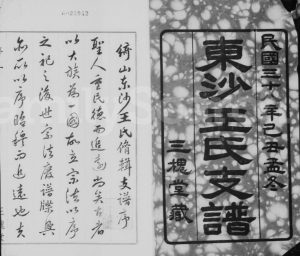 民國三十八年己丑孟冬
東沙王氏支譜
三槐堂藏
倚山東沙王氏脩輯支譜序
聖人重民德而追遠尚矣古者
以大族為一國故立宗法以序
之祀之後世宗法廢譜牒興
亦所以序昭穆而追遠也夫